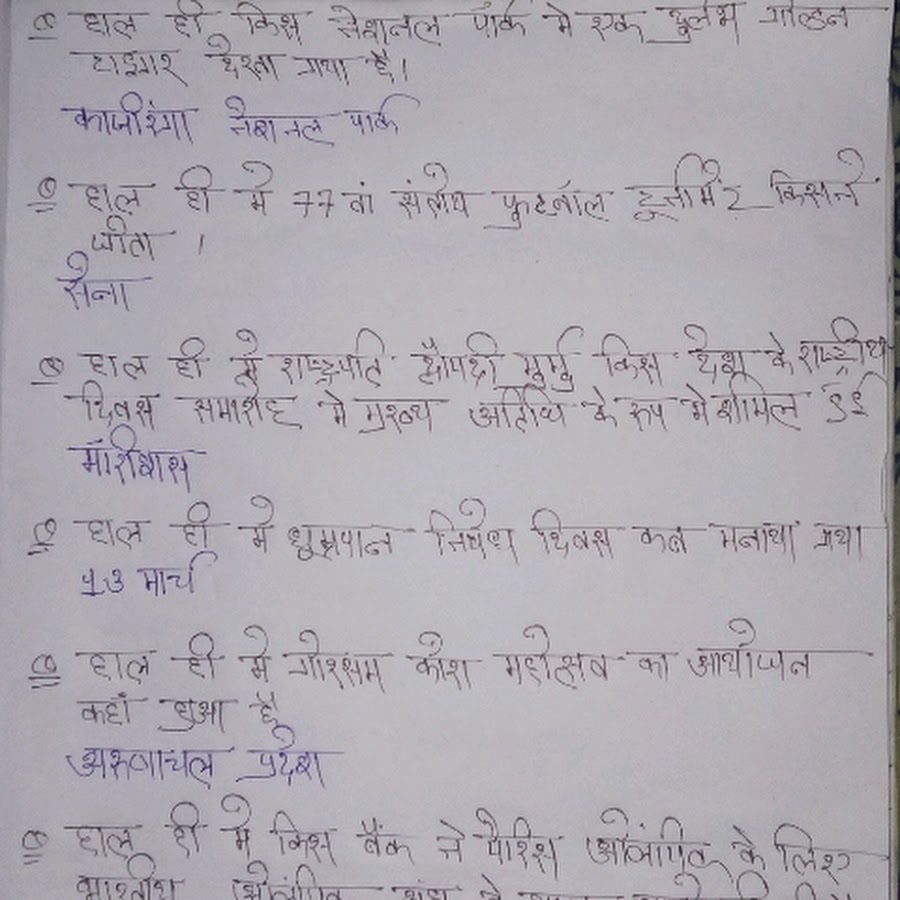 Q हाल ही किस नेशनल पार्क मे एक दुर्लभ गोल्डन
टाइगर देखा गया है।
काजीरंगा नेशनल पार्क
Q हाल ही मे 77वां संतोष फुटबॉल टूर्नामेंट किसने
जीता ।
सेना
Q हाल ही मे राष्ट्रपति द्रौपदी मुर्मु किस देश के राष्ट्रीय
दिवस समारोह मे मुख्य अतिथि के रूप मे शामिल हुई
मॉरीशस
Q हाल ही मे धुम्रपान निषेध दिवस कब मनाया गया
13 मार्च
Q हाल ही मे गोरसम कोरा महोत्सव का आयोजन
कहाँ हुआ है
अरुणाचल प्रदेश
Q हाल ही मे किस बैंक ने पेरिस ओलंपिक के लिए
भारतीय ओलंपिक संघ से